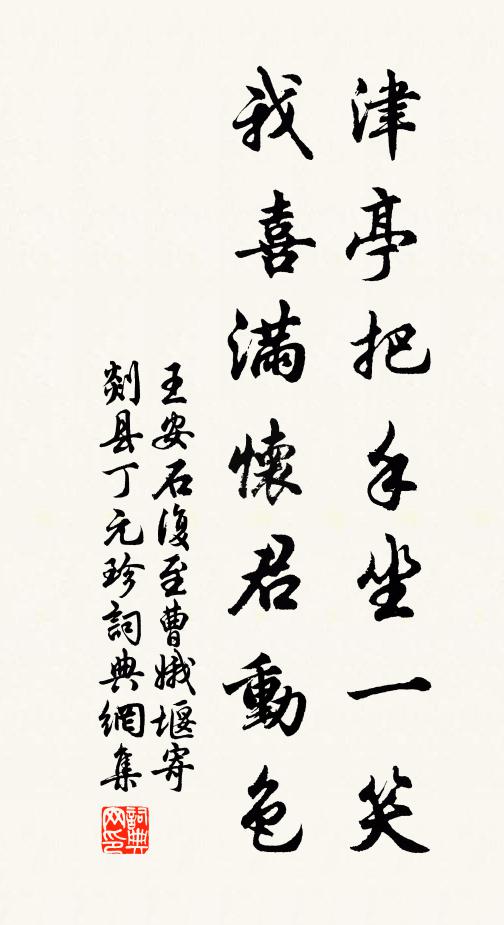 津亭把手坐一笑
我喜滿懷君動色
王安石復至曹娥堰寄
剡县丁元珍詞典網集
詞典網印